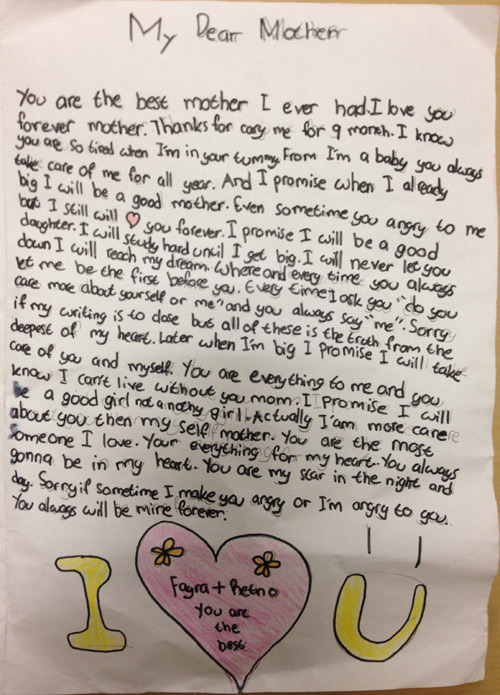 My Dear Mother
You are the best mother I ever had. I love you
forever mother. Thanks for cary me for 9 month. I know
you are so tired when I'm in your tummy. From I'm a baby you always
take care of me for all year. And I promise when I already
big I will be a good mother. Even sometime you angry to me
but I still will ❤ you forever. I promise I will be a good
daughter. I will study hard until I get big. I will never let you
down I will reach my dream. Where and every time you always
let me be the first before you. Every time I ask you "do you
care more about yourself or me" and you always say "me". Sorry
if my writing is to close but all of these is the truth from the
deepest of my heart. Later when I'm big I promise I will take
care of you and myself. You are everything to me and you
know I can't live without you mom. I promise I will
be a good girl not a nothy girl. Actually I'am more care
about you then my self mother. You are the most
someone I love. Your everything for my heart. You always
gonna be in my heart. You are my star in the night and
day. Sorry if sometime I make you angry or I'm angry to you.
You always will be mine forever.
I U
Fayra + Retno
You are
the
best